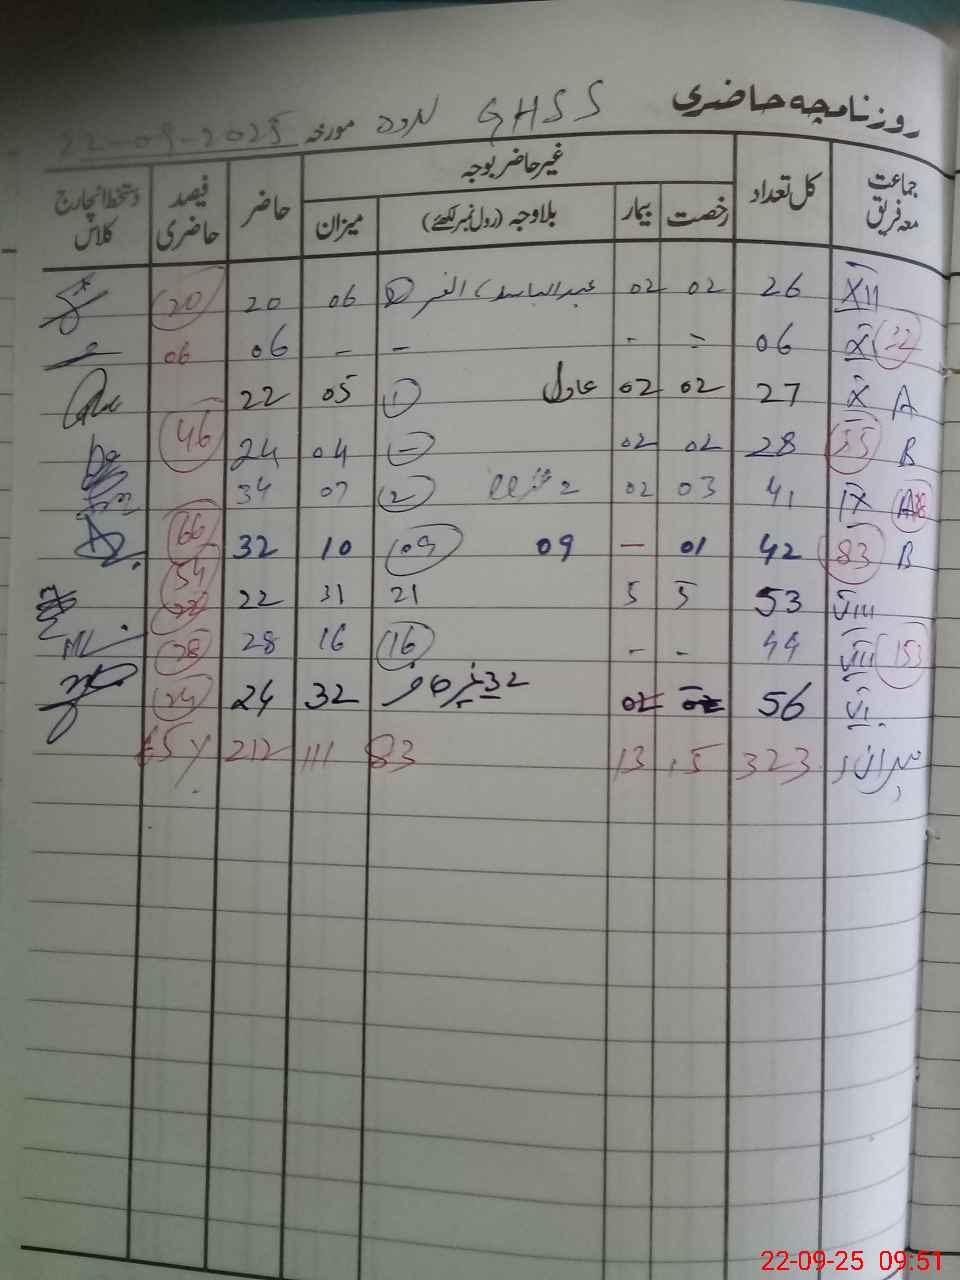 روزنامچہ حاضری GHSS مورخہ 22-09-2025
جماعت معہ فریق کل تعداد غیر حاضر بوجہ حاضر فیصد حاضری دستخط انچارج کلاس
رخصت بیمار بلاوجہ (رول نمبر لکھئے) میزان
XII 26 02 02 عبدالباسط، 2 06 20 20
X 06 = - - - 06 06
X A 27 02 02 عادل 1 05 22
B 55 28 02 02 - 04 24 46
IX A 38 41 03 02 2 2 07 34
B 83 42 01 - 09 09 10 32 66
54
VIII 53 5 5 21 31 22 22
VII 153 44 - - 16 16 28 28
VI 56 02 02 32 32 24 24
323 15 13 83 111 212 65%
22-09-25 09:51